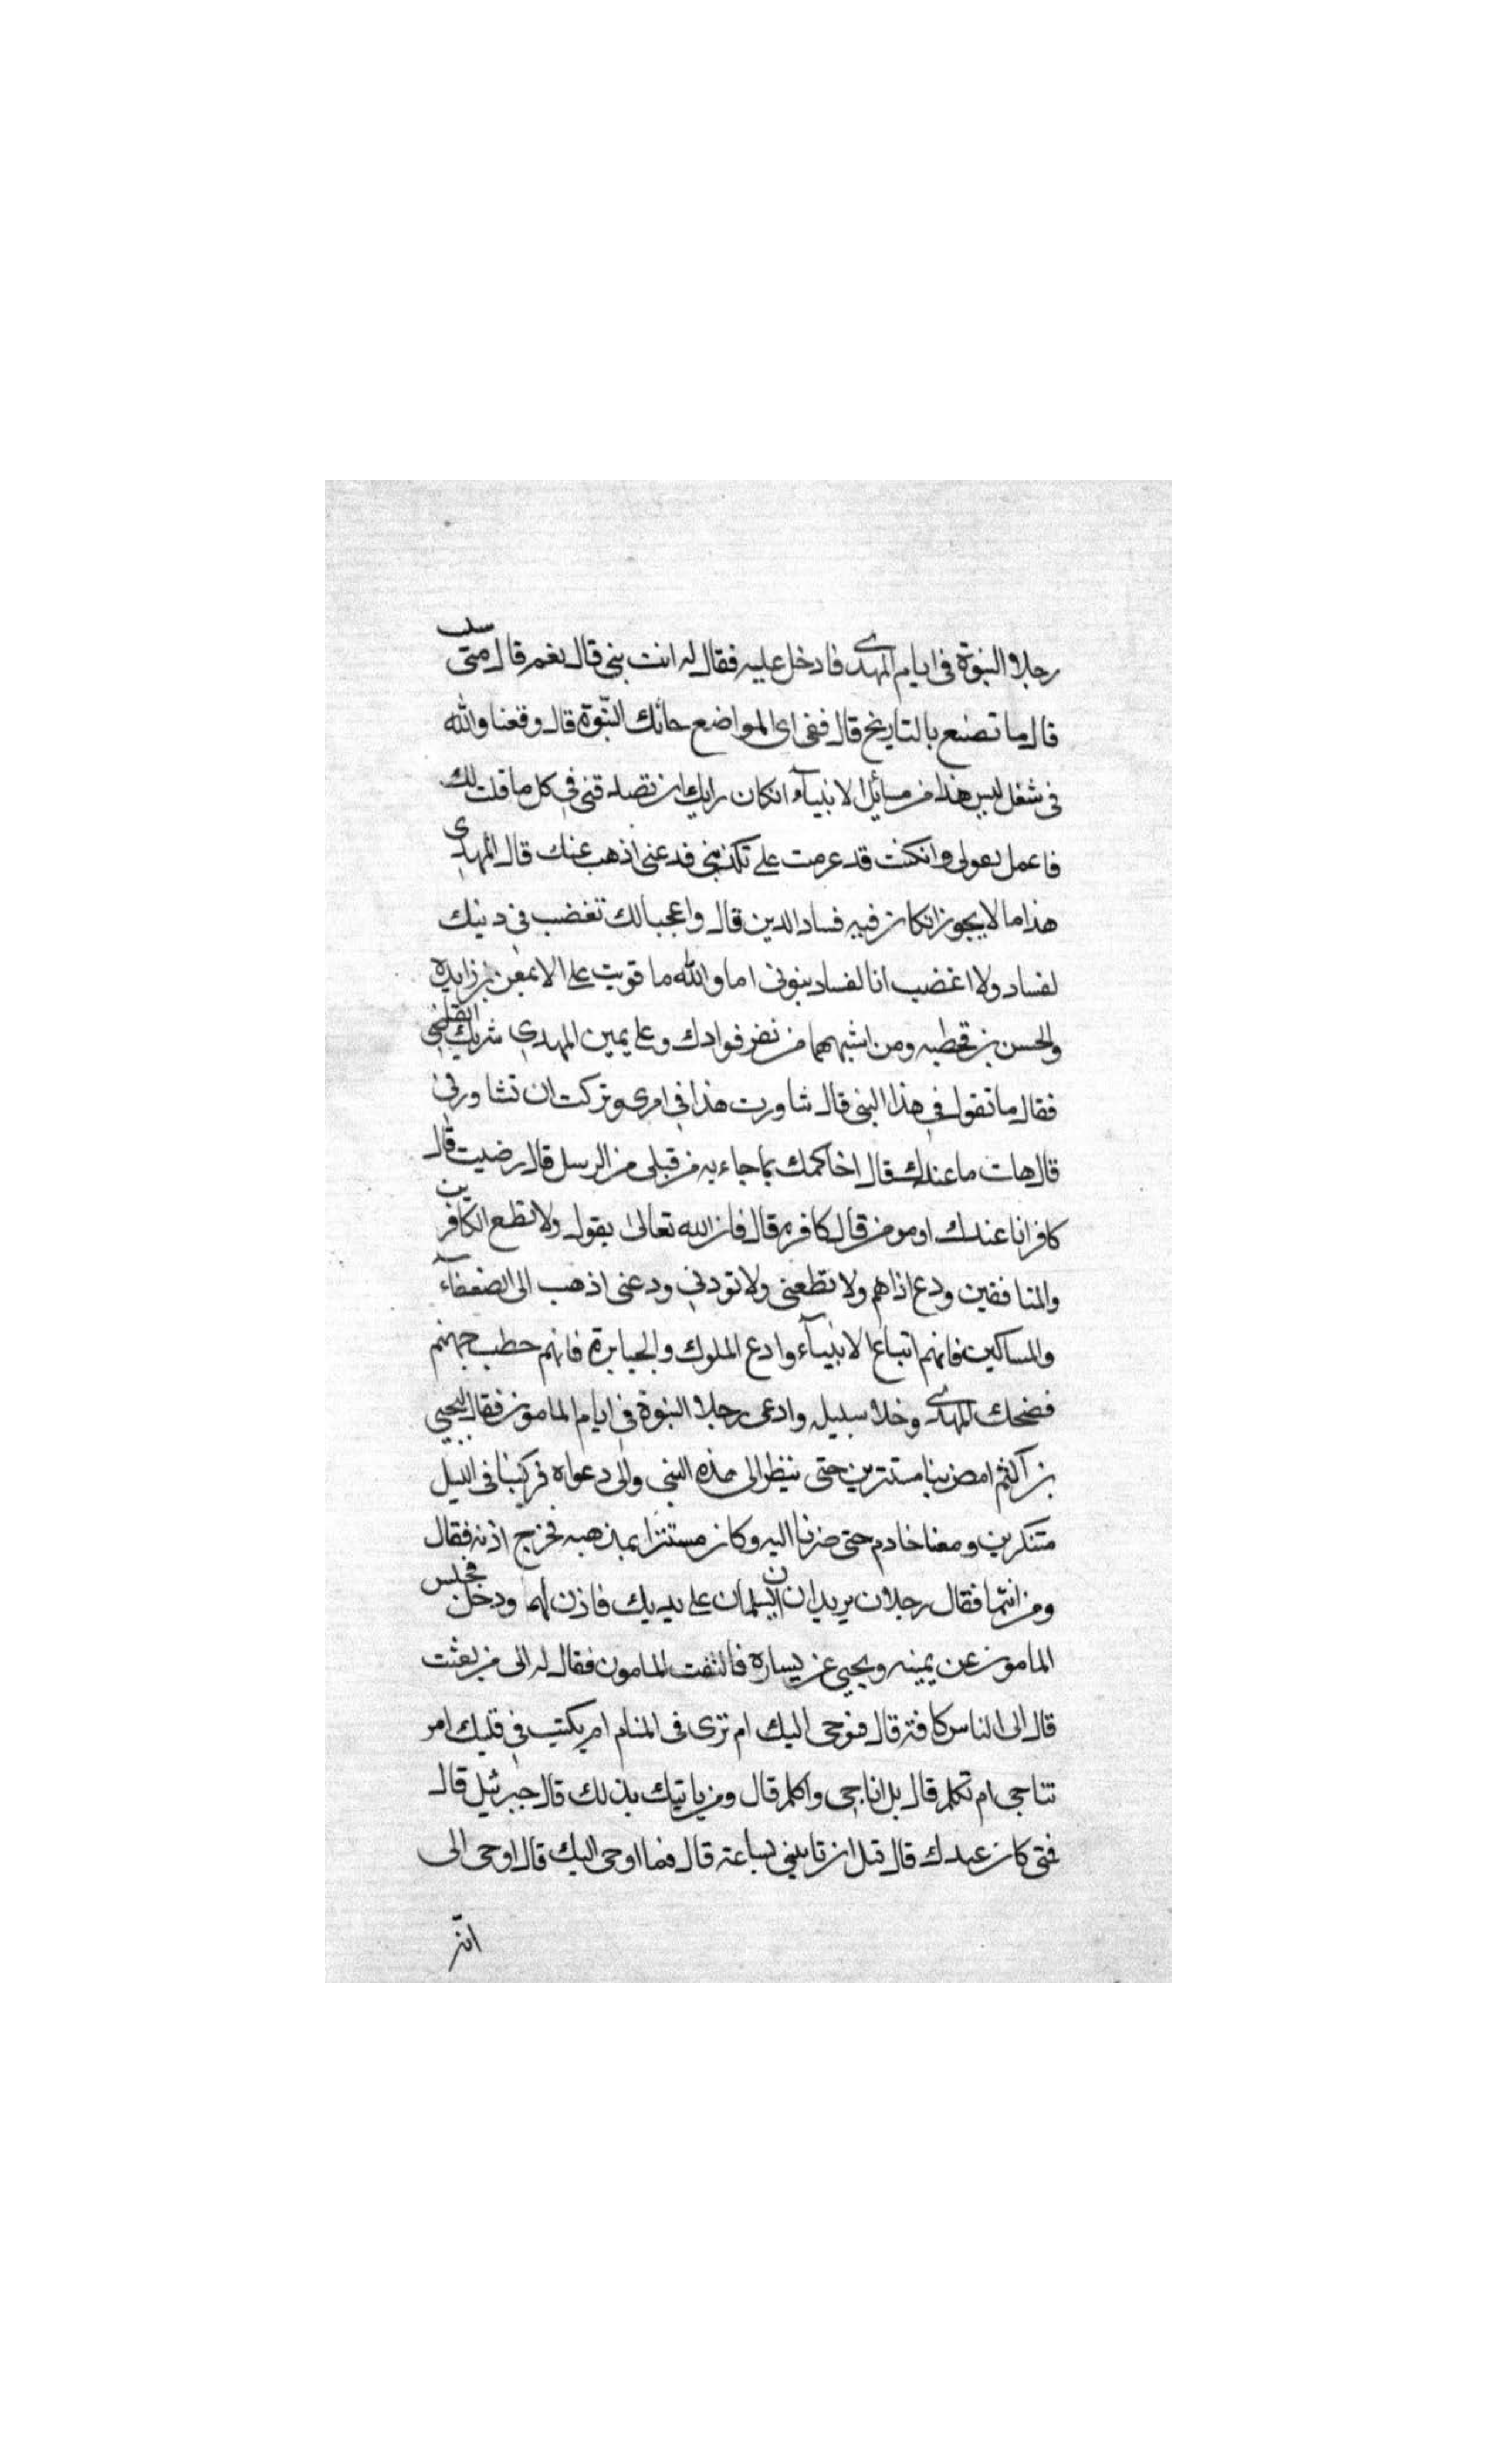 رجلا النبوة فى ايام المهدى فادخل عليه فقال له انت نبى قال نعم قال متى
قال ما تصنع بالتاريخ قال ففى اى المواضع جائك النبوة قال وقعنا والله
فى شغل ليس هذا من مسائل الانبيآء انكان رايك ان تصدقنى فى كل ما قلت لك
فاعمل بقولى وانكنت قد عزمت على تكذيبى فدعنى اذهب عنك قال المهدى
هذا ما لا يجوز اذ كان فيه فساد الدين قال واعجبا لك تغضب فى دينك
لفساد ولا اغضب انا لفساد نبوتى اما والله ما قويت على الا بمعن بن زايده
والحسن بن قحطبه ومن اشبههما من نفر قوادك وعلى يمين المهدى شريك القاضى
فقال ما تقول فى هذا النبى قال شاورت هذا فى امرى وتركت ان تشاورنى
قال هات ما عندك قال احاكمك بما جاء به من قبلى من الرسل قال رضيت قال
كافر انا عندك او مومن قال كافر قال فان الله تعالى يقول ولا تطع الكافرين
والمنافقين ودع اذاهم ولا تطعنى ولا توذنى ودعنى اذهب الى الضعفآء
والمساكين فانهم اتباع الانبيآء وادع الملوك والجبابرة فانهم حطب جهنم
فضحك المهدى وخلا سبيله وادعى رجلا النبوة فى ايام المامون فقال ليحيى
بن آكثم امض بنا مستترين حتى ننظر الى هذه النبى والى دعواه فركبنا فى الليل
متنكرين ومعنا خادم حتى صرنا اليه وكان مستترا بمذهبه فخرج اذنه فقال
ومن انتما فقال رجلان يريدان ان يسلمان على يديك فاذن لهما ودخل فجلس
المامون عن يمينه ويحيى عن يساره فالتفت المامون فقال له الى من بعثت
قال الى الناس كافة قال فنوحى اليك ام ترى فى المنام ام يكتب فى قلبك امر
تناجى ام تكلم قال بل اناجى واكلم قال ومن ياتيك بذلك قال جبرئيل قال
فمتى كان عبدك قال قبل ان تاتينى بساعة قال فما اوحى اليك قال اوحى الى
انه